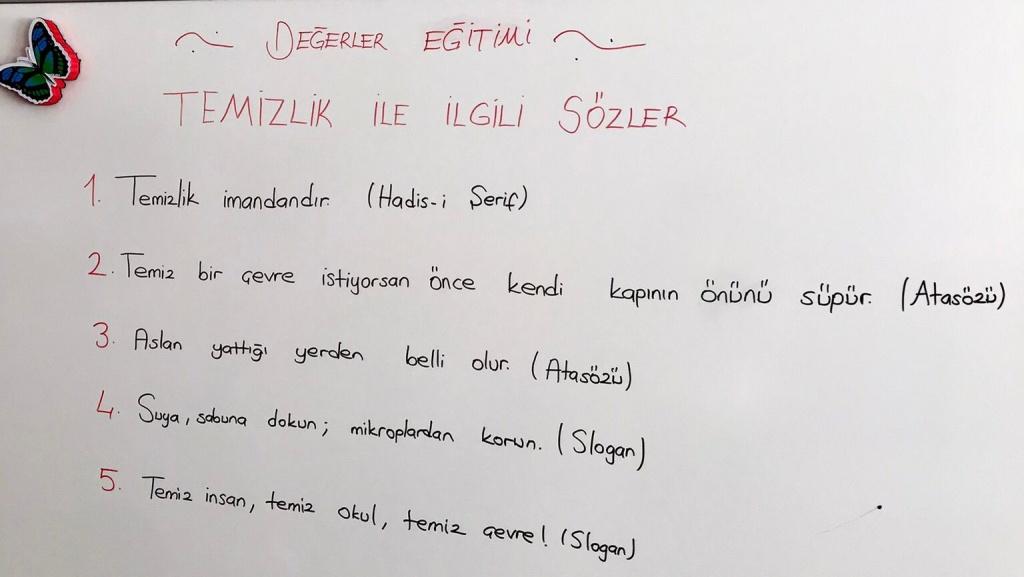 DEĞERLER EĞİTİMİ
TEMİZLİK İLE İLGİLİ SÖZLER
1. Temizlik imandandır. (Hadis-i Şerif)
2. Temiz bir çevre istiyorsan önce kendi kapının önünü süpür. (Atasözü)
3. Aslan yattığı yerden belli olur. (Atasözü)
4. Suya, sabuna dokun; mikroplardan korun. (Slogan)
5. Temiz insan, temiz okul, temiz çevre! (Slogan)